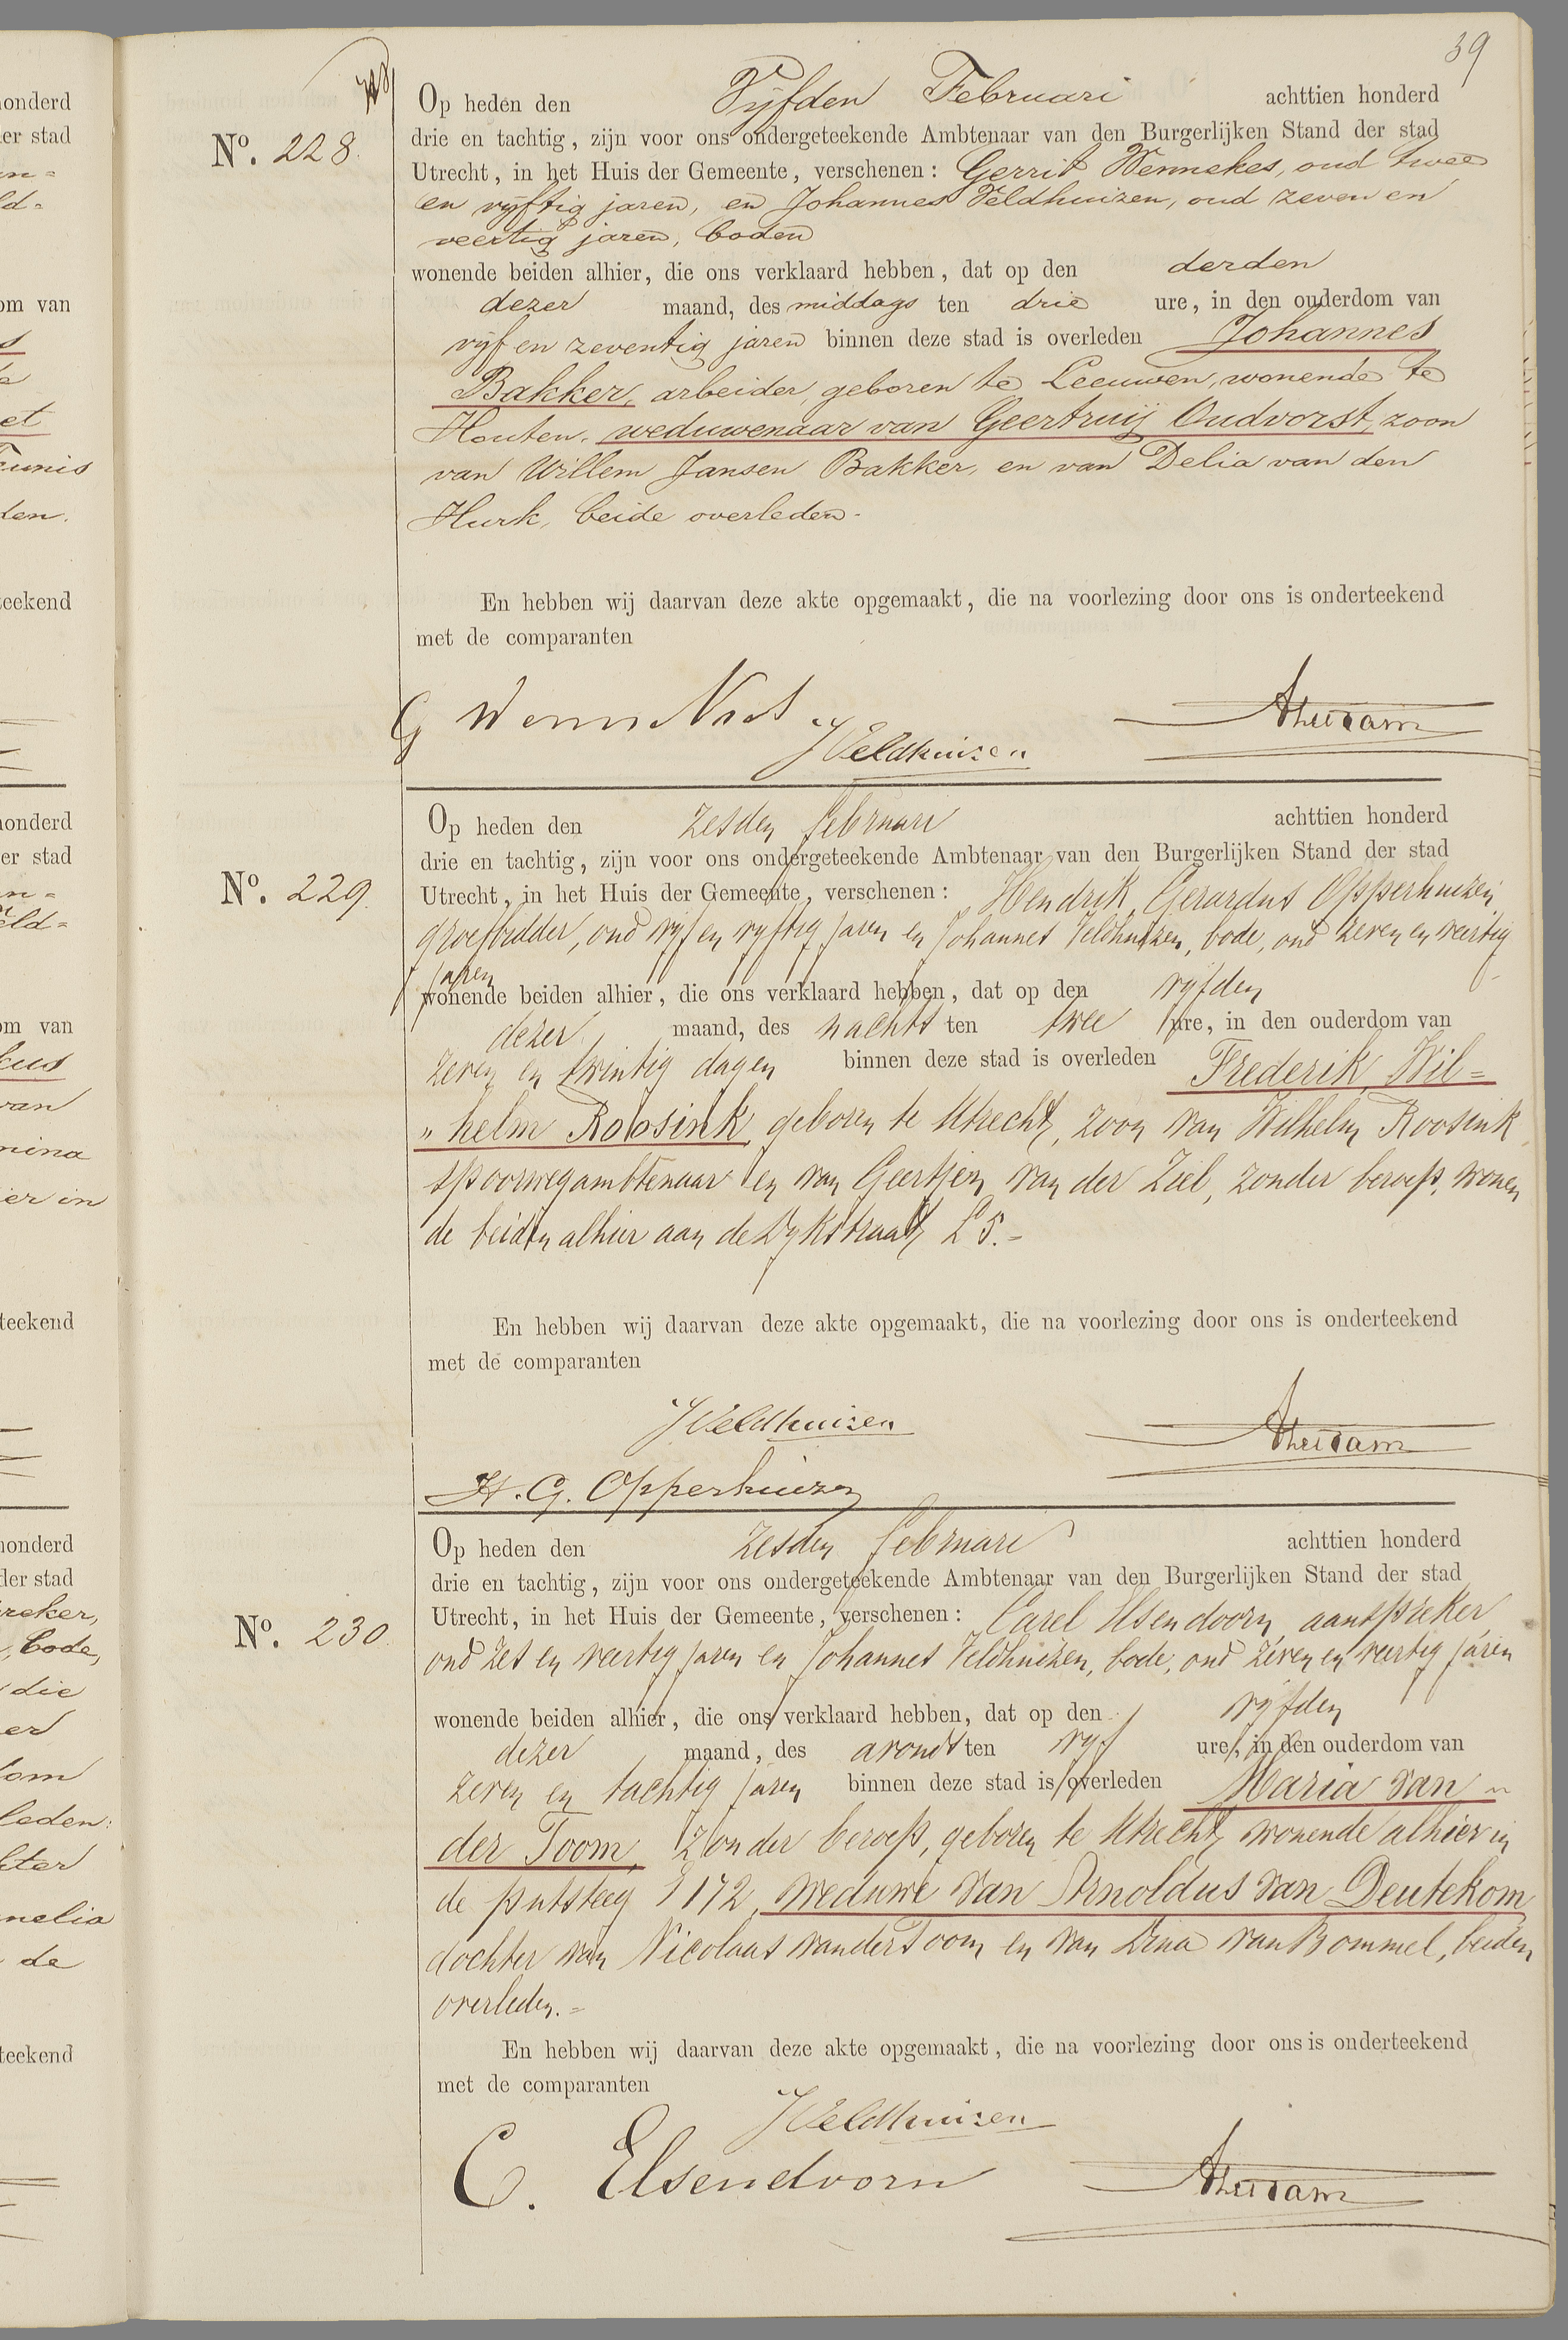 39
Op heden den Vijfden Februari achttien honderd
No. 228. drie en tachtig, zijn voor ons ondergeteekende Ambtenaar van den Burgerlijken Stand der stad
Utrecht, in het Huis der Gemeente, verschenen: Gerrit Wennekes, oud twee
en vijftig jaren, en Johannes Veldhuizen, oud zeven en
veertig jaren, boden
wonende beiden alhier, die ons verklaard hebben, dat op den derden
dezer maand, des middags ten drie ure, in den ouderdom van
vijf en zeventig jaren binnen deze stad is overleden Johannes
Bakker, arbeider, geboren te Leeuwen, wonende te
Houten, weduwenaar van Geertruij Oudvorst, zoon
van Willem Jansen Bakker, en van Delia van den
Hurk, beide overleden.
En hebben wij daarvan deze akte opgemaakt, die na voorlezing door ons is onderteekend
met de comparanten
G Wennekes
JVeldhuizen
Op heden den zesden februari achttien honderd
drie en tachtig, zijn voor ons ondergeteekende Ambtenaar van den Burgerlijken Stand der stad
No. 229. Utrecht, in het Huis der Gemeente, verschenen: Hendrik Gerardus Opperhuizen
groefbidder, oud vijf en vyftig jaren en Johannes Veldhuizen, bode, oud zeven en veertig
jaren
wonende beiden alhier, die ons verklaard hebben, dat op den vyfden
dezer maand, des nachts ten twee ure, in den ouderdom van
zeven en twintig dagen binnen deze stad is overleden Frederik Wil=
„helm Roosink geboren te Utrecht, zoon van Wilhelm Roosink
spoorwegambtenaar en van Geertjen van der Ziel, zonder beroep, wonen
de beiden alhier aan de Dykstraat L 5.=
En hebben wij daarvan deze akte opgemaakt, die na voorlezing door ons is onderteekend
met de comparanten
JVeldhuizen
H. G. Opperhuizen
Op heden den zesden februari achttien honderd
drie en tachtig, zijn voor ons ondergeteekende Ambtenaar van den Burgerlijken Stand der stad
No. 230. Utrecht, in het Huis der Gemeente, verschenen: Carel Elsendoorn aanspreker
oud zes en veertig jaren en Johannes Veldhuizen, bode, oud zeven en veertig jaren
wonende beiden alhier, die ons verklaard hebben, dat op den vyfden
dezer maand, des avonds ten vyf ure, in den ouderdom van
zeven en tachtig jaren binnen deze stad is overleden Maria van „
der Toom, zonder beroep, geboren te Utrecht, wonende alhier in
de putsteeg 172, weduwe van Arnoldus van Deutekom
dochter van Nicolaas van der Toom en van Dina van Bommel, beiden
overleden.=
En hebben wij daarvan deze akte opgemaakt, die na voorlezing door ons is onderteekend
met de comparanten
JVeldhuizen
C. Elsendoorn